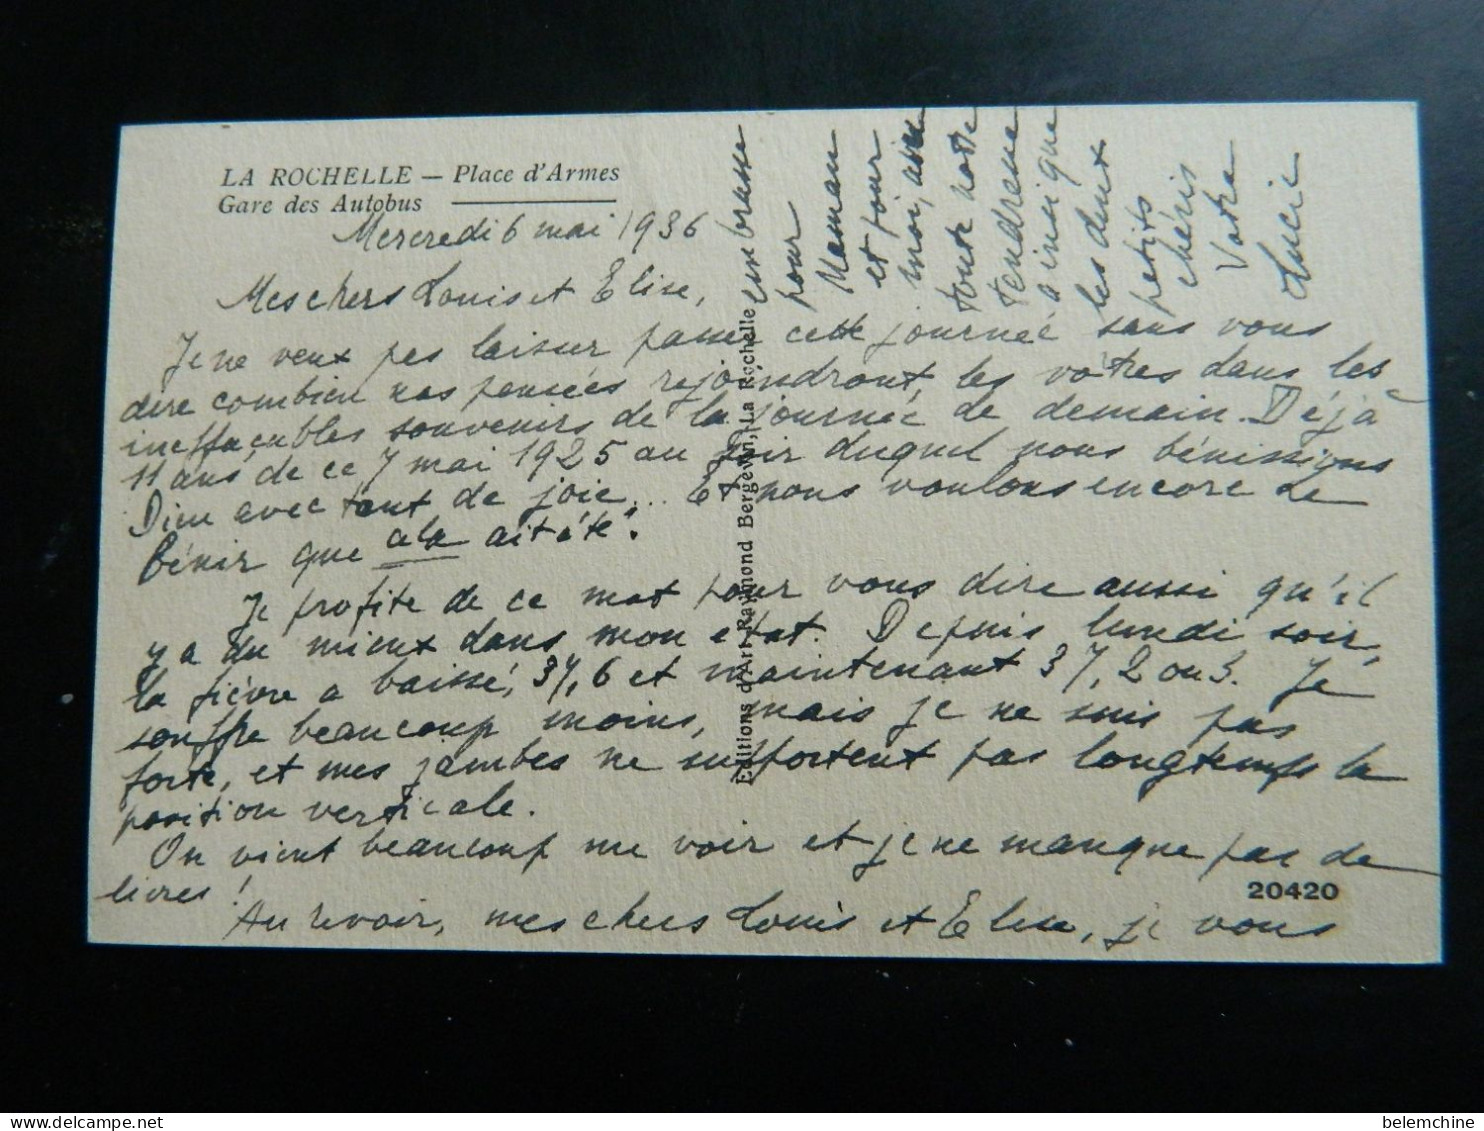 LA ROCHELLE — Place d'Armes
Gare des Autobus
Mercredi 6 mai 1936
Mes chers Louis et Elise,
Je ne veux pas laisser passer cette journée sans vous
dire combien nos pensées rejoindront les vôtres dans les
ineffaçables souvenirs de la journée de demain. Déjà
11 ans de ce 7 mai 1925 au soir duquel nous bénissions
Dieu avec tant de joie... Et nous voulons encore le
bénir que cela ait été.
Je profite de ce mot pour vous dire aussi qu'il
y a du mieux dans mon état. Depuis lundi soir,
la fièvre a baissé, 37,6 et maintenant 37,2 ou 3. Je
souffre beaucoup moins, mais je ne suis pas
forte, et mes jambes ne supportent pas longtemps la
position verticale.
On vient beaucoup me voir et je ne manque pas de
livres!
Au revoir, mes chers Louis et Elise, je vous
embrasse
pour
Maman
et pour
moi, avec
toute notre
tendresse
ainsi que
les deux
petits
chéris
Votre
Lucie
Editions d'Art Raymond Bergevin, La Rochelle
20420
belemchine